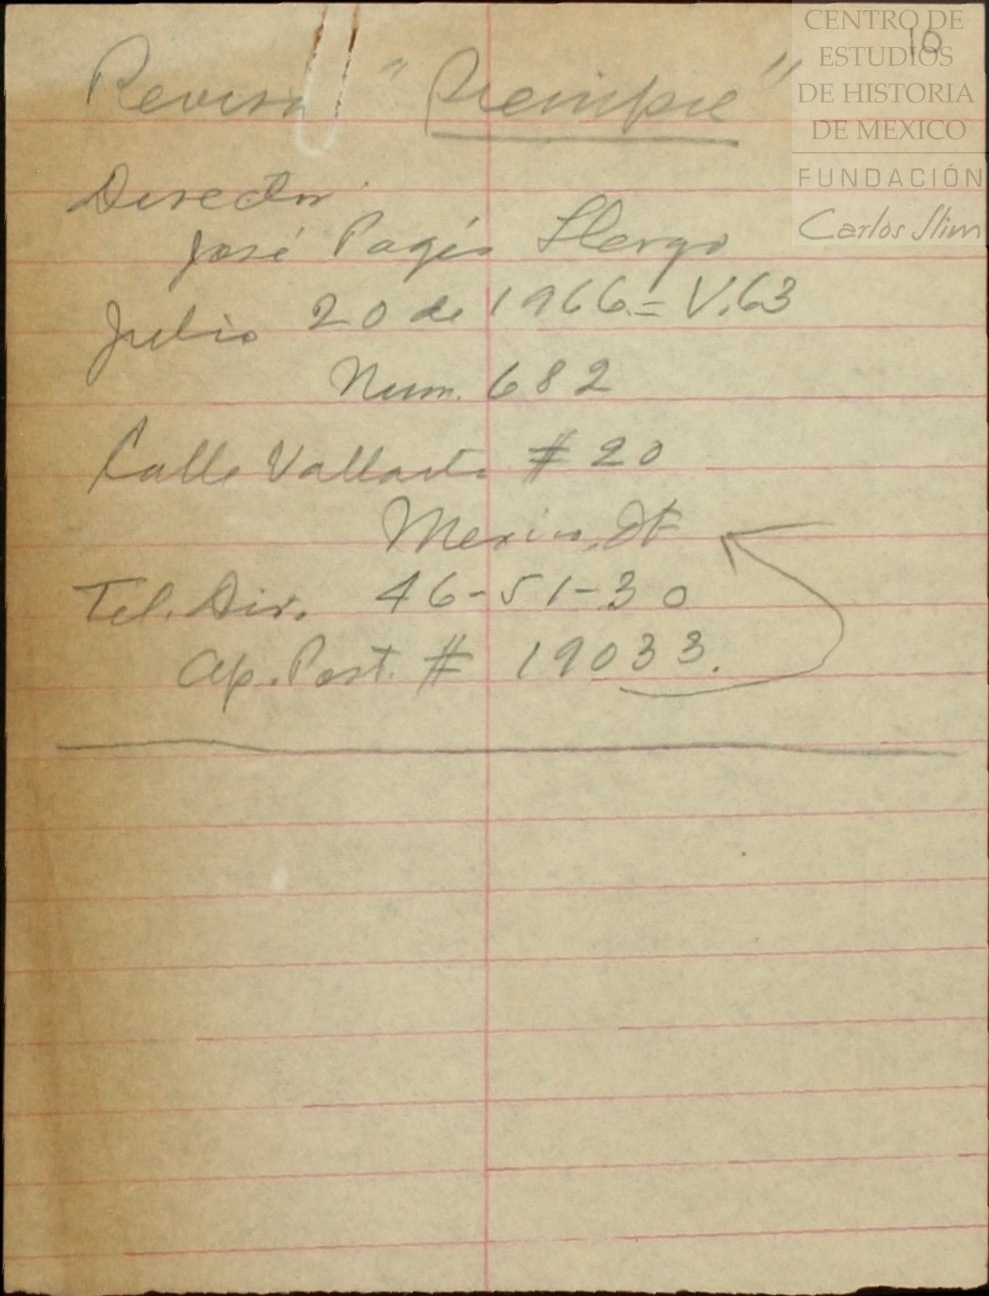 CENTRO DE
ESTUDIOS
DE HISTORIA
DE MEXICO
FUNDACIÓN
Carlos Slim
10
Revista "Siempre"
Director
José Pagés Llergo
Julio 20 de 1966.= V.63
Num. 682
Calle Vallarta # 20
Mexico, DF
Tel. Dir. 46-51-30
Ap. Post. # 19033.